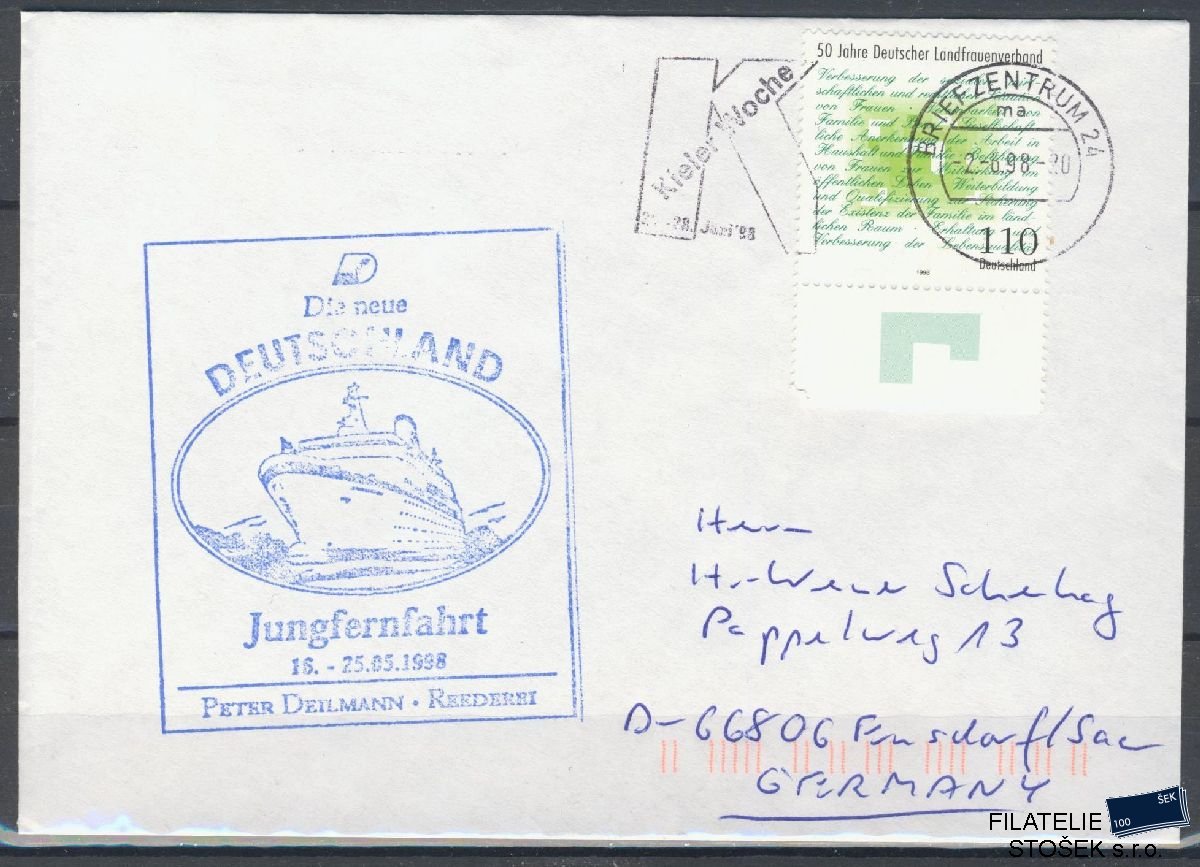 Kieler Woche
-28. Juni '98
50 Jahre Deutscher Landfrauenverband
Verbesserung der
schaftlichen und
von Frauen
Familie und Gesellschaft
liche Anerkennung der Arbeit in
Haushalt und
von Frauen
öffentlichen Leben Weiterbildung
und Qualifizierung zur Sicherung
der Existenz der Familie im länd-
lichen Raum Erhaltung und
Verbesserung der Lebensqualität
110
Deutschland
1998
BRIEFZENTRUM 24
ma
-2.-6.98-20
D
Die neue
DEUTSCHLAND
Jungfernfahrt
16. - 25.05.1998
PETER DEILMANN · REEDEREI
Herrn
H.-Werner Scherhag
Pappelweg 13
D-66806 Ensdorf/Saar
GERMANY
FILATELIE
STOŠEK s.r.o.
100 ŠEK